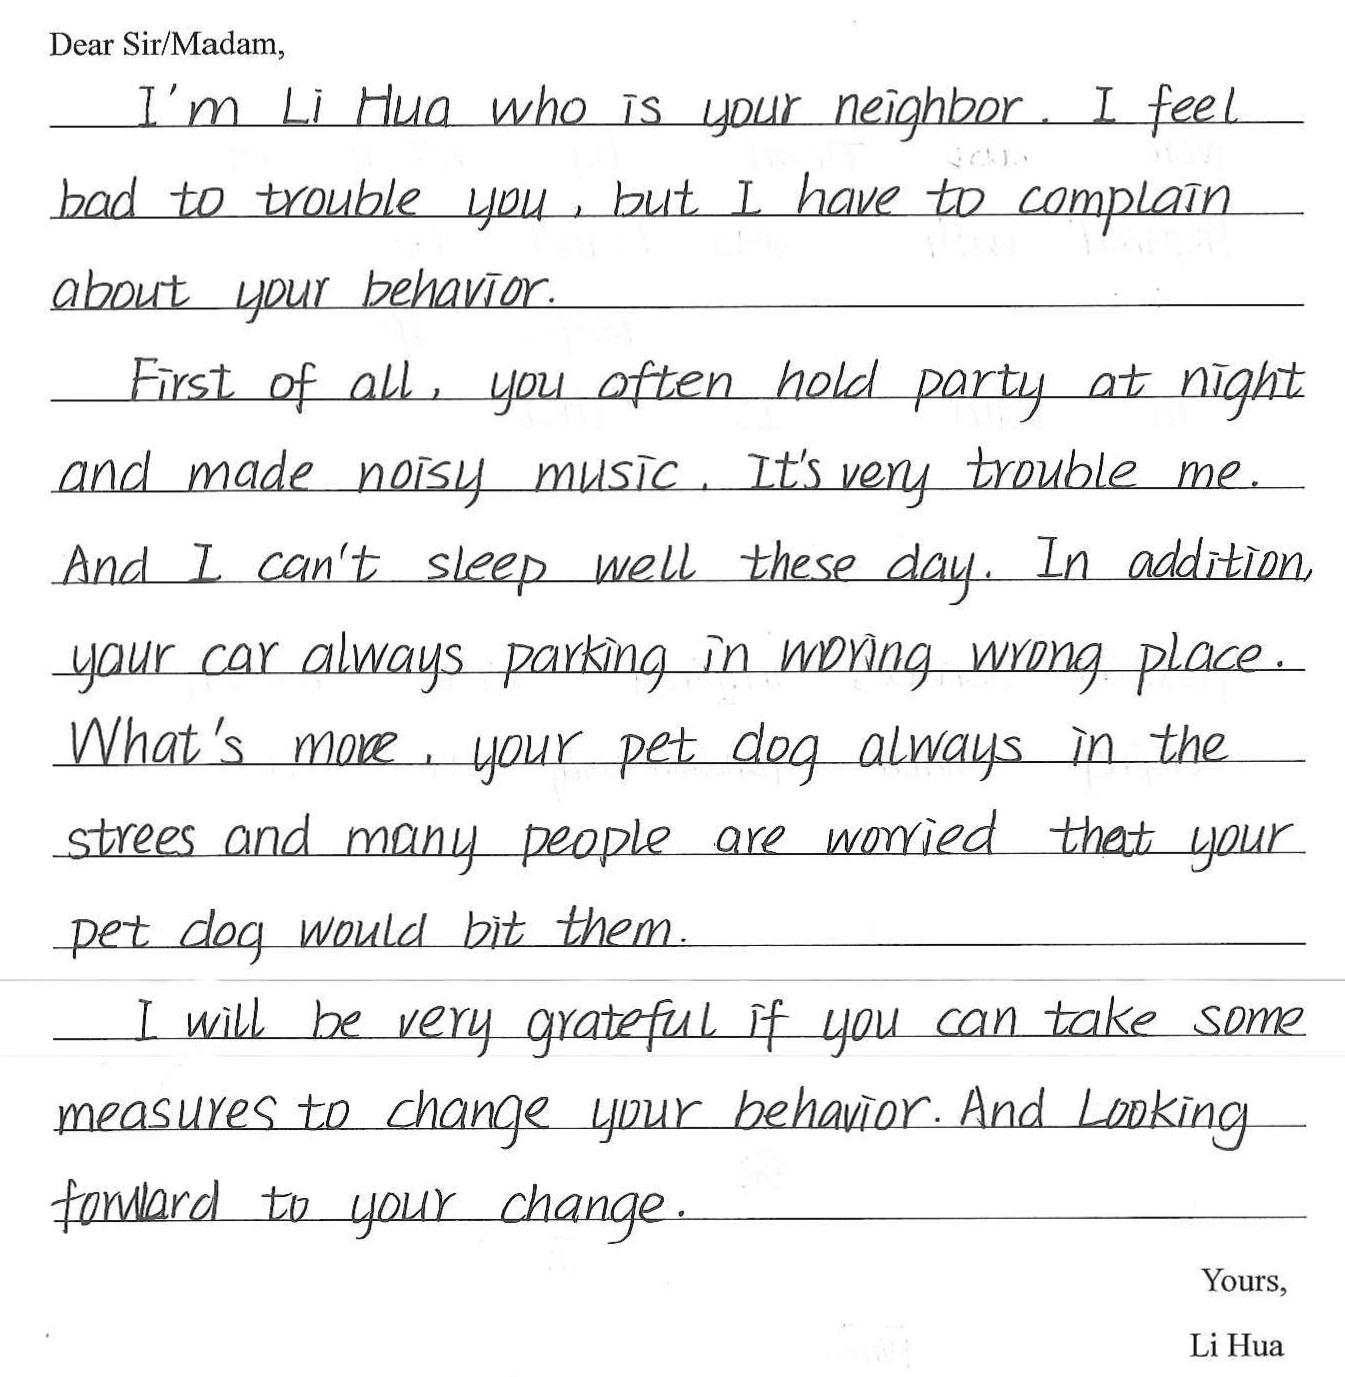 Dear Sir/Madam,
I'm Li Hua who is your neighbor. I feel
bad to trouble you, but I have to complain
about your behavior.
First of all, you often hold party at night
and made noisy music. It's very trouble me.
And I can't sleep well these day. In addition,
your car always parking in wrong place.
What's more, your pet dog always in the
strees and many people are worried that your
pet dog would bit them.
I will be very grateful if you can take some
measures to change your behavior. And Looking
forward to your change.
Yours,
Li Hua